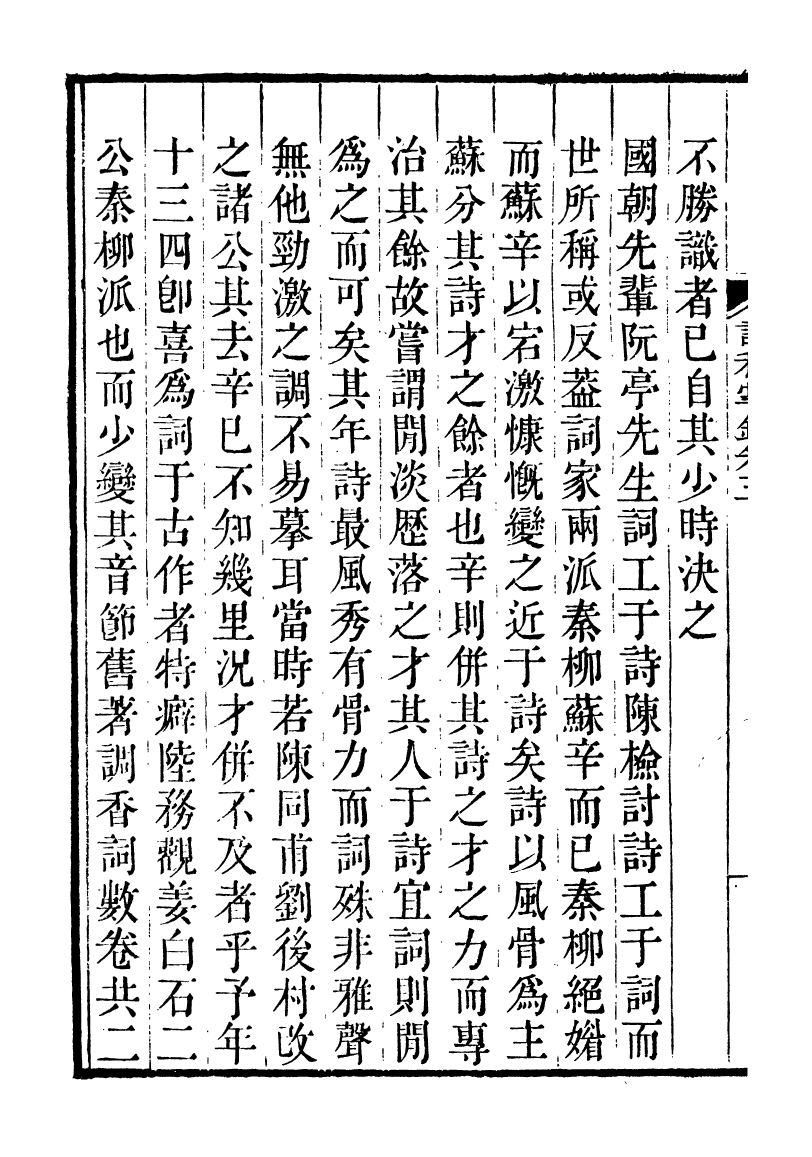 不勝識者已自其少時決之
國朝先輩阮亭先生詞工于詩陳檢討詩工于詞而
世所稱或反葢詞家兩派秦柳蘇辛而已秦柳絕媚
而蘇辛以宕激慷慨變之近于詩矣詩以風骨爲主
蘇分其詩才之餘者也辛則併其詩之才之力而專
治其餘故嘗謂閒淡歷落之才其人于詩宜詞則閒
爲之而可矣其年詩最風秀有骨力而詞殊非雅聲
無他勁激之調不易摹耳當時若陳同甫劉後村改
之諸公其去辛已不知幾里況才併不及者乎予年
十三四卽喜爲詞于古作者特癖陸務觀姜白石二
公秦柳派也而少變其音節舊著調香詞數卷共二